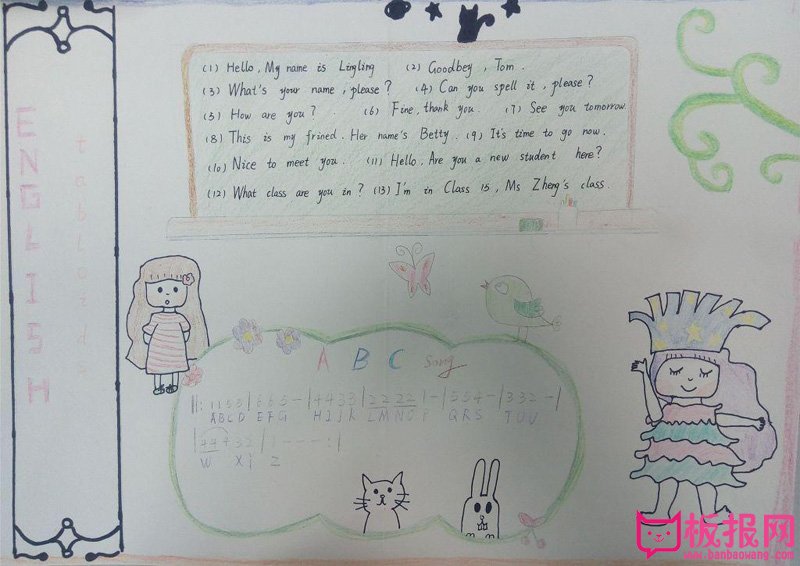 ENGLISH
tabloids
(1) Hello, My name is Lingling (2) Goodbey, Tom.
(3) What's your name, please? (4) Can you spell it, please?
(5) How are you? (6) Fine, thank you. (7) See you tomorrow.
(8) This is my frined. Her name's Betty. (9) It's time to go now.
(10) Nice to meet you. (11) Hello, Are you a new student here?
(12) What class are you in? (13) I'm in Class 15, Ms Zheng's class.
A B C Song
||: 1 1 5 5 | 6 6 5 - | 4 4 3 3 | 2 2 2 2 1 - | 5 5 4 - | 3 3 2 - |
A B C D E F G H I J K L M N O P Q R S T U V
W X Y Z
板报网
www.banbaowang.com